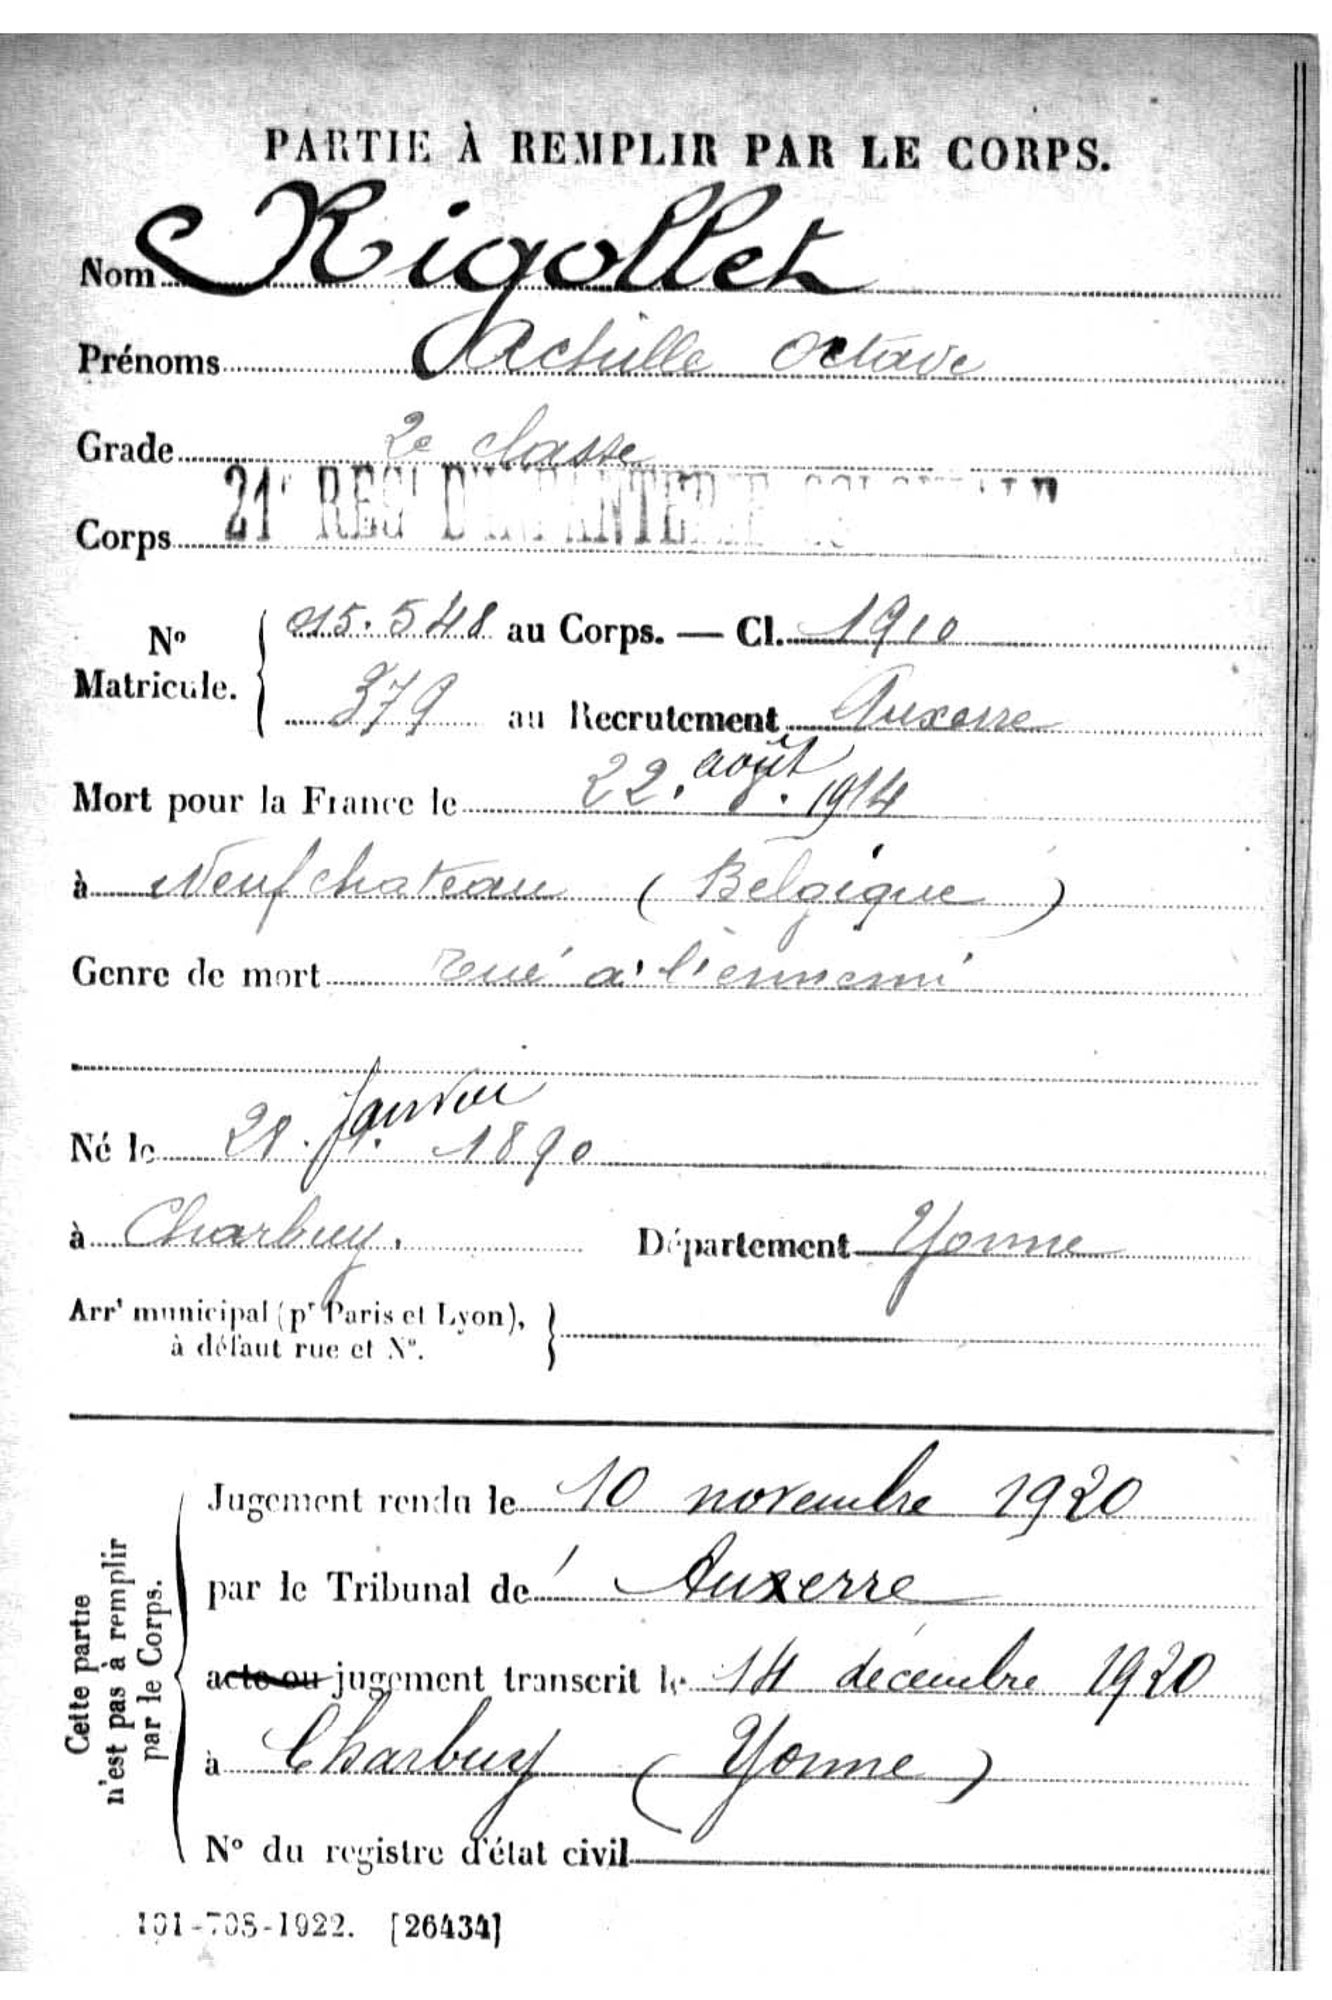 PARTIE À REMPLIR PAR LE CORPS.
Nom Rigollet
Prénoms Achille Octave
Grade 2e classe
Corps 21e REGt D'INFANTERIE COLONIALE
No Matricule. 15.548 au Corps. — Cl. 1910
379 au Recrutement Auxerre
Mort pour la France le 22. août 8. 1914
à Neufchateau (Belgique)
Genre de mort Tué à l'ennemi
Né le 28 Janvier 1. 1890
à Charbuy. Département Yonne
Arrt municipal (pr Paris et Lyon),
à défaut rue et No.
Cette partie
n'est pas à remplir
par le Corps.
Jugement rendu le 10 novembre 1920
par le Tribunal de Auxerre
acte ou jugement transcrit le 14 décembre 1920
à Charbuy (Yonne)
No du registre d'état civil
101-708-1922. [26434]